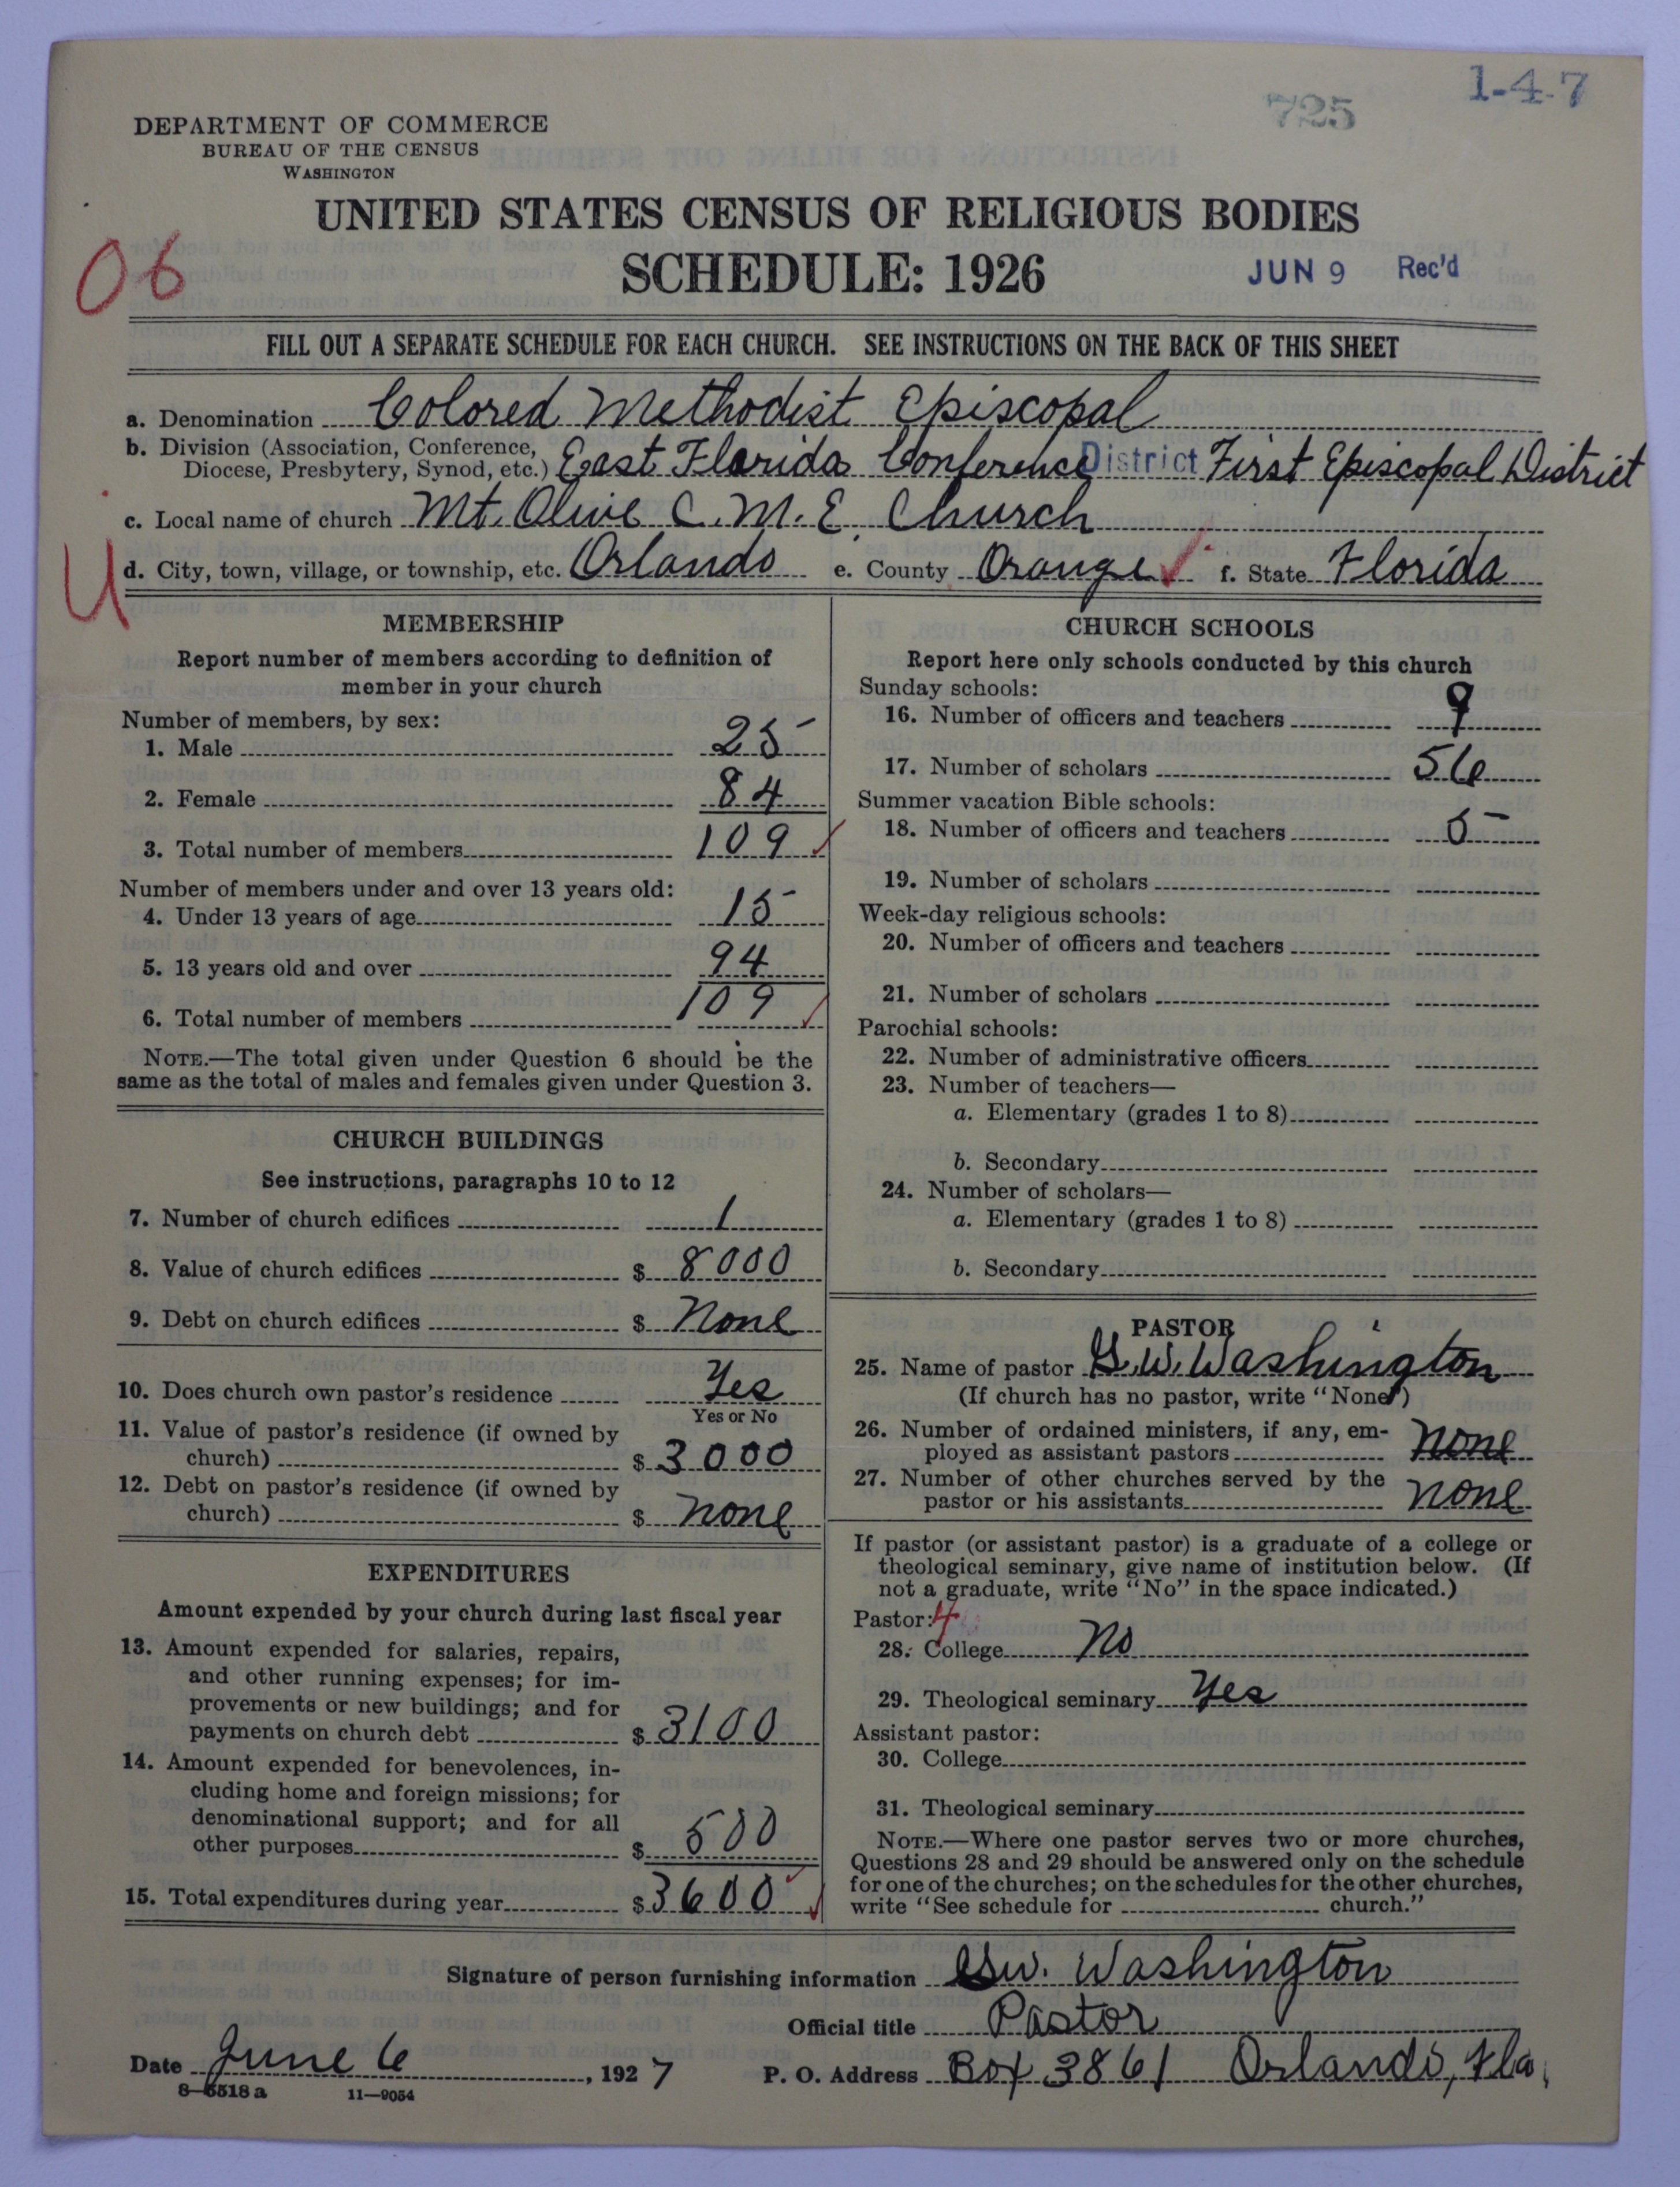 1-4-7
725
DEPARTMENT OF COMMERCE
BUREAU OF THE CENSUS
WASHINGTON
UNITED STATES CENSUS OF RELIGIOUS BODIES
06
SCHEDULE: 1926
JUN 9 Rec'd
FILL OUT A SEPARATE SCHEDULE FOR EACH CHURCH. SEE INSTRUCTIONS ON THE BACK OF THIS SHEET
a. Denomination Colored Methodist Episcopal
b. Division (Association, Conference,
Diocese, Presbytery, Synod, etc.) East Florida Conference District First Episcopal District
c. Local name of church Mt. Olive C. M. E. Church
U
d. City, town, village, or township, etc. Orlando e. County Orange f. State Florida
MEMBERSHIP
Report number of members according to definition of
member in your church
Number of members, by sex:
1. Male 25
2. Female 84
3. Total number of members 109
Number of members under and over 13 years old:
4. Under 13 years of age 15
5. 13 years old and over 94
6. Total number of members 109
NOTE.—The total given under Question 6 should be the
same as the total of males and females given under Question 3.
CHURCH BUILDINGS
See instructions, paragraphs 10 to 12
7. Number of church edifices 1
8. Value of church edifices $ 8000
9. Debt on church edifices $ None
10. Does church own pastor's residence Yes
Yes or No
11. Value of pastor's residence (if owned by
church) $ 3000
12. Debt on pastor's residence (if owned by
church) $ none
EXPENDITURES
Amount expended by your church during last fiscal year
13. Amount expended for salaries, repairs,
and other running expenses; for im-
provements or new buildings; and for
payments on church debt $ 3100
14. Amount expended for benevolences, in-
cluding home and foreign missions; for
denominational support; and for all
other purposes $ 500
15. Total expenditures during year $ 3600
CHURCH SCHOOLS
Report here only schools conducted by this church
Sunday schools:
16. Number of officers and teachers 9
17. Number of scholars 56
Summer vacation Bible schools:
18. Number of officers and teachers 5
19. Number of scholars
Week-day religious schools:
20. Number of officers and teachers
21. Number of scholars
Parochial schools:
22. Number of administrative officers
23. Number of teachers—
a. Elementary (grades 1 to 8)
b. Secondary
24. Number of scholars—
a. Elementary (grades 1 to 8)
b. Secondary
PASTOR
25. Name of pastor G. W. Washington
(If church has no pastor, write "None")
26. Number of ordained ministers, if any, em-
ployed as assistant pastors none
27. Number of other churches served by the
pastor or his assistants none
If pastor (or assistant pastor) is a graduate of a college or
theological seminary, give name of institution below. (If
not a graduate, write "No" in the space indicated.)
Pastor: 4
28. College No
29. Theological seminary Yes
Assistant pastor:
30. College
31. Theological seminary
NOTE.—Where one pastor serves two or more churches,
Questions 28 and 29 should be answered only on the schedule
for one of the churches; on the schedules for the other churches,
write "See schedule for church."
Signature of person furnishing information G.W. Washington
Official title Pastor
Date June 6, 1927 P. O. Address Box 3861 Orlando, Fla,
8-5518 a 11-9054